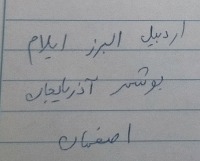 اردبیل البرز ایلام
بوشهر آذربایجان
اصفهان